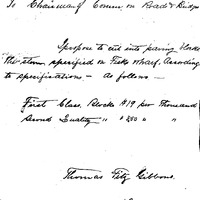 To Chairman of Comm on Roads & Bridges
I propose to cut into paving blocks
the stone specified on Fisks wharf. According
to specifications - as follows -
First Class. Blocks $19 per thousand
Second Quality " " " "
Thomas Fitz Gibbons.